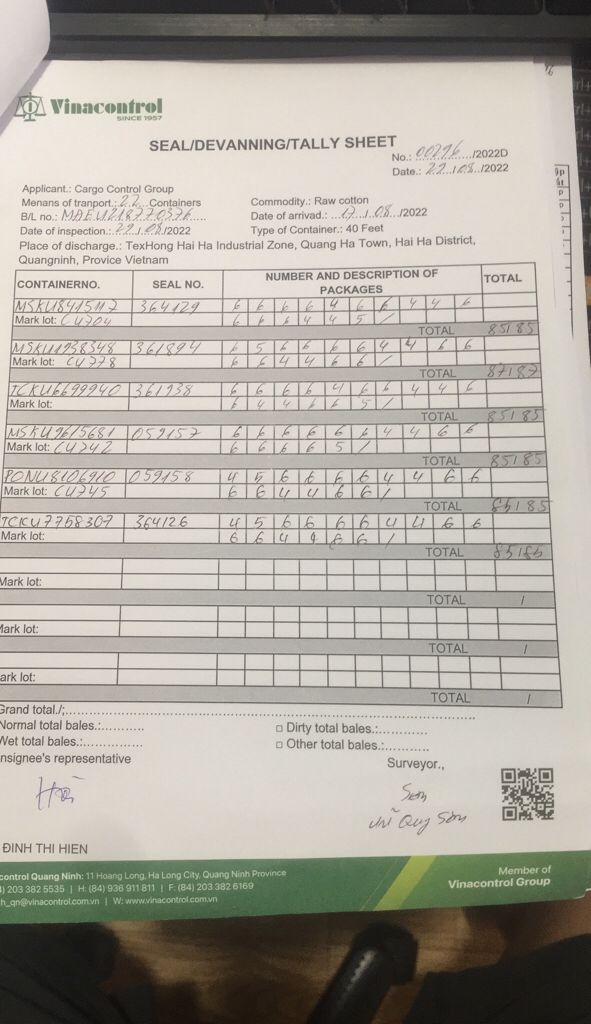 Vinacontrol
SINCE 1957
SEAL/DEVANNING/TALLY SHEET
No.: 00296 /2022D
Date.: 22/08/2022
Applicant.: Cargo Control Group
Menans of tranport.: 22 Containers
Commodity.: Raw cotton
B/L no.: MAEU218770376
Date of arrivad.: 17/08/2022
Date of inspection.: 22/08/2022
Type of Container.: 40 Feet
Place of discharge.: TexHong Hai Ha Industrial Zone, Quang Ha Town, Hai Ha District,
Quangninh, Provice Vietnam
CONTAINERNO. SEAL NO. NUMBER AND DESCRIPTION OF PACKAGES TOTAL
MSKU8415117 364129 6 6 6 6 4 6 6 4 4 6
Mark lot: CU704 6 6 6 4 4 5 /
TOTAL 85/85
361894 6 5 6 6 6 6 4 4 6 6
Mark lot: CU778 6 6 4 4 6 6 /
TOTAL 87/87
TCKU6699940 361938 6 6 6 6 4 6 6 4 4 6
Mark lot: 6 4 4 6 6 5 /
TOTAL 85/85
MSKU9615681 059157 6 6 6 6 6 6 4 4 6 6
Mark lot: CU742 6 6 6 6 5 /
TOTAL 85/85
PONU8106910 059158 4 5 6 6 6 6 4 4 6 6
Mark lot: CU745 6 6 4 4 6 6 /
TOTAL 85/85
TCKU7758307 364126 4 5 6 6 6 6 4 4 6 6
Mark lot: 6 6 4 4 6 6 /
TOTAL 85/85
Mark lot:
TOTAL /
Mark lot:
TOTAL /
ark lot:
TOTAL /
Grand total./;
Normal total bales.:
□ Dirty total bales.:
Wet total bales.:
□ Other total bales.:
nsignee's representative
Surveyor.,
Sơn
Quý Sơn
ĐINH THI HIEN
control Quang Ninh: 11 Hoang Long, Ha Long City, Quang Ninh Province
4) 203 382 5535 | H: (84) 936 911 811 | F: (84) 203 382 6169
h_qn@vinacontrol.com.vn | W: www.vinacontrol.com.vn
Member of
Vinacontrol Group